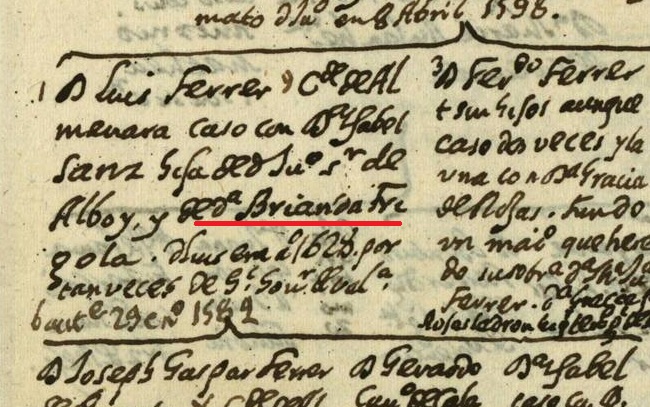 mato dlu° en 8 Abril 1598.
1 D Luis Ferrer C^de de Al
menara caso con D^a Ysabel
Sanz hija de d Ju° s^r de
Alboy, y de d^a Brianda Fri
gola. d Luis era a° 1628. por
tan veces de G^l Gov^r de Val^a
baut° 29 en° 1582
3 D Fer^do Ferrer
t sin hijos aunque
caso dos veces y la
una con D^a Gracia
de Rojas. fundo
un mai° que here
do su sobr^a d^a
Ferrer. d^a Gracia
D Joseph Gaspar Ferrer
D Gerardo
D^a Ysabel
caso con D.